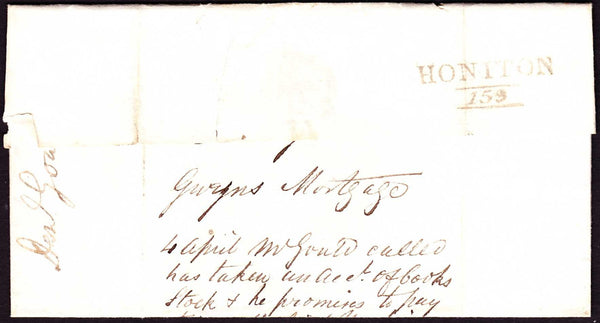 HONITON
159
Gwyns Mortgage
4 April Mr Gould called
has taken an acct. of books
stock & he promises to pay